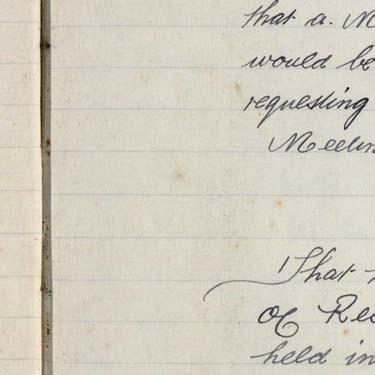 that a. M
would be
requesting
Meetin
That
of Re
held in